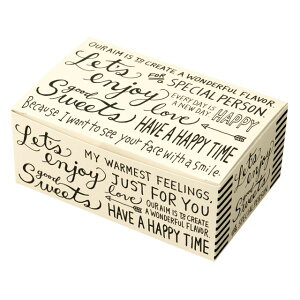 OUR AIM IS TO CREATE A WONDERFUL FLAVOR.
Let's enjoy
good Sweets
FOR A SPECIAL PERSON
EVERY DAY IS A NEW DAY
HAPPY
love
Because I want to see your face with a smile.
HAVE A HAPPY TIME
Let's enjoy
good Sweets
MY WARMEST FEELINGS,
JUST FOR YOU
love
OUR AIM IS TO CREATE
A WONDERFUL FLAVOR.
HAVE A HAPPY TIME